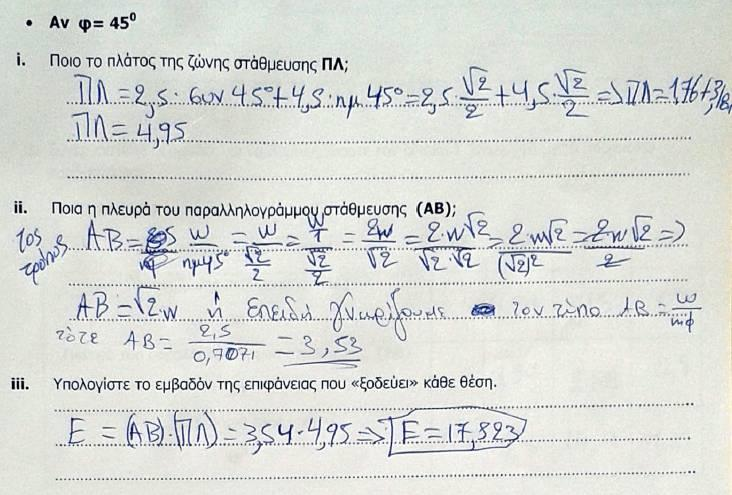 • Αν φ= 45⁰
i. Ποιο το πλάτος της ζώνης στάθμευσης ΠΛ;
ΠΛ = 2,5 · συν 45° + 4,5 · ημ 45° = 2,5 · √2/2 + 4,5 · √2/2 => ΠΛ = 1,76 + 3,18
ΠΛ = 4,95
ii. Ποια η πλευρά του παραλληλογράμμου στάθμευσης (ΑΒ);
1ος τρόπος AB = w/ημ45° = w/(√2/2) = (w/1)/(√2/2) = 2w/√2 = 2w√2/(√2·√2) = 2w√2/(√2)² = 2w√2/2 =>
AB = √2·w ή επειδή γνωρίζουμε τον τύπο AB = w/ημφ
τότε AB = 2,5/0,7071 = 3,53
iii. Υπολογίστε το εμβαδόν της επιφάνειας που «ξοδεύει» κάθε θέση.
E = (AB)·(ΠΛ) = 3,54 · 4,95 => E = 17,523